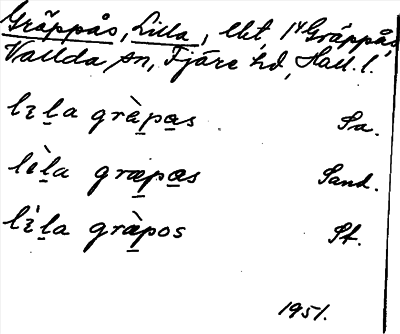 Gräppås, Lilla, lht, 1/4 Gräppås,
Vallda sn, Fjäre hd, Hall. l.
lɪl̲a gràp̲a̲s Sa.
lɪ̀l̲a græp̲a̲s Sand.
lɪ̀l̲a gràp̲os St.
1951.